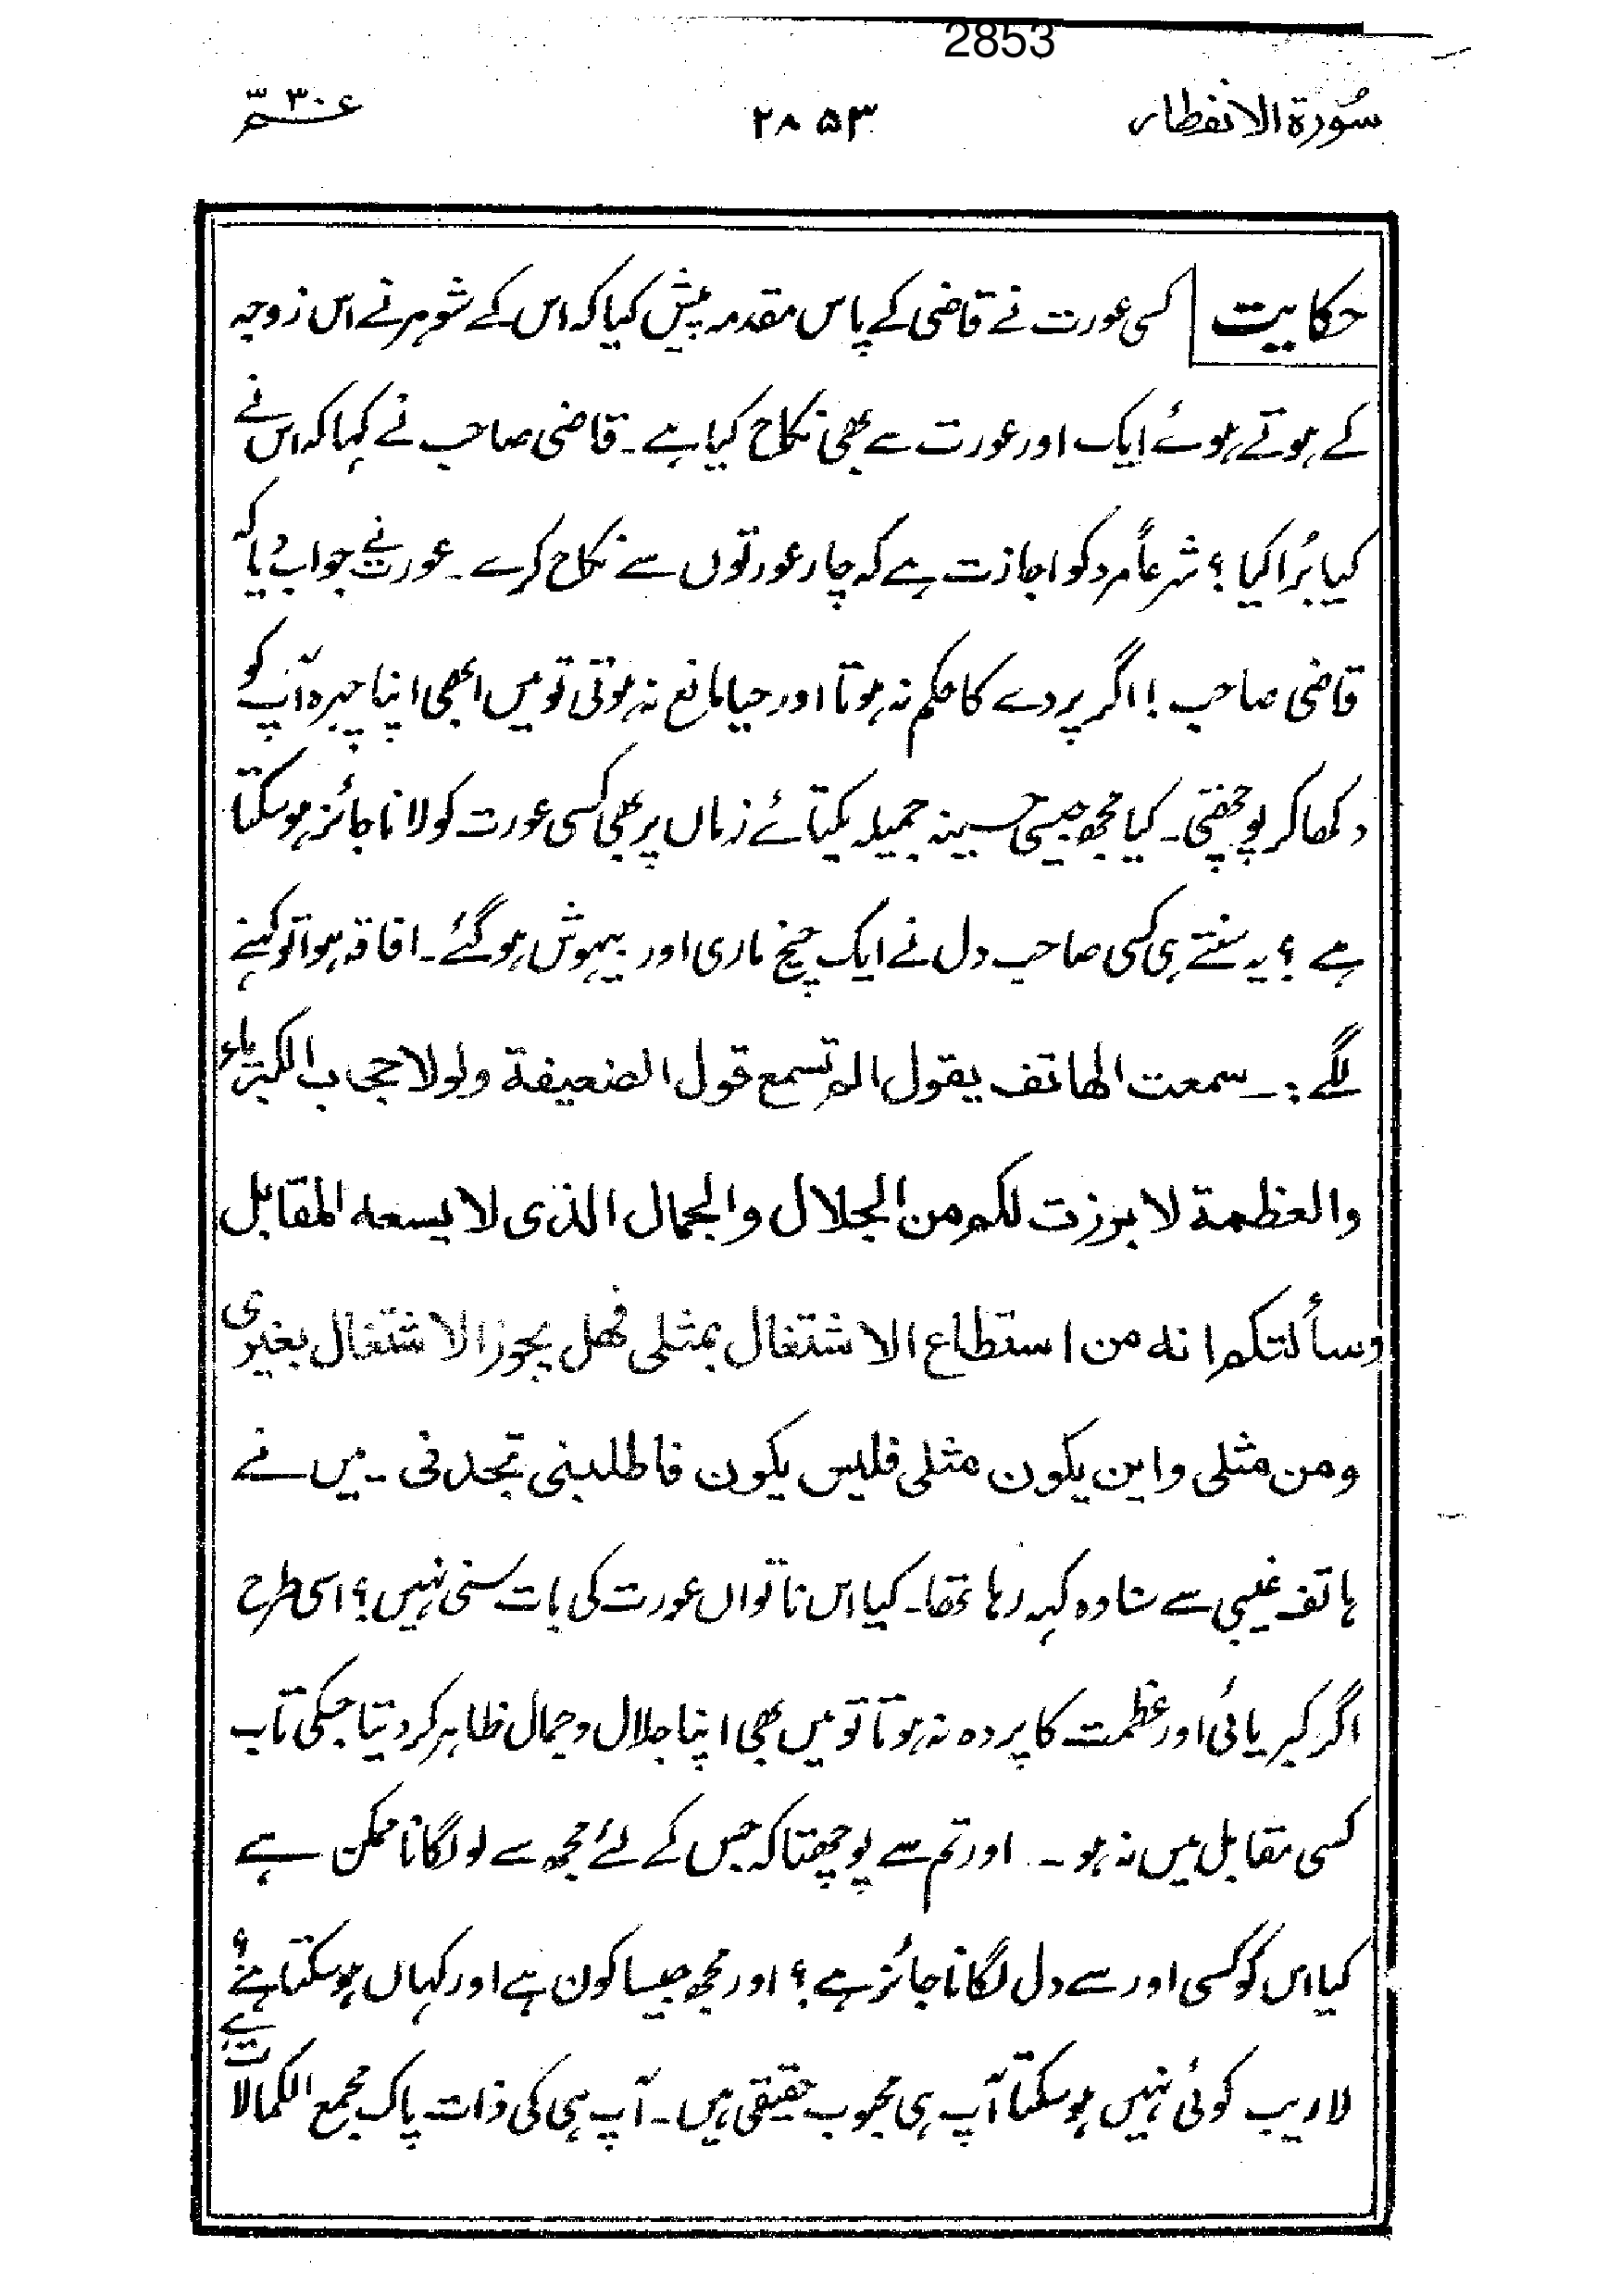 2853
سُورۃ الانفطار ۲۸۵۳ عمّ ۳۰
حکایت کسی عورت نے قاضی کے پاس مقدمہ پیش کیا کہ اس کے شوہر نے اس زوجہ
کے ہوتے ہوئے ایک اور عورت سے بھی نکاح کیا ہے۔ قاضی صاحب نے کہا کہ اس نے
کیا بُرا کیا ؟ شرعاً مرد کو اجازت ہے کہ چار عورتوں سے نکاح کرے۔ عورت نے جواب دیا کہ
قاضی صاحب ! اگر پردے کا حکم نہ ہوتا اور حیا مانع نہ ہوتی تو میں ابھی اپنا چہرہ آپ کو
دکھا کر پوچھتی۔ کیا مجھ جیسی حسینہ جمیلہ یکتائے زماں پر بھی کسی عورت کو لانا جائز ہو سکتا
ہے ؟ یہ سنتے ہی کسی صاحب دل نے ایک چیخ ماری اور بیہوش ہو گئے۔ افاقہ ہوا تو کہنے
لگے :۔ سمعت الھاتف یقول الم تسمع قول الضعیفۃ ولولا حجاب الکبریاء
والعظمۃ لابرزت لکم من الجلال والجمال الذی لا یسعه المقابل
وسألتکم انه من استطاع الاشتغال بمثلی فھل یجوز الاشتغال بغیری
ومن مثلی واین یکون مثلی فلیس یکون فاطلبنی تجدنی ۔ میں نے
ہاتف غیبی سے سنا وہ کہہ رہا تھا۔ کیا اس ناتواں عورت کی بات سنی نہیں ؟ اسی طرح
اگر کبریائی اور عظمت کا پردہ نہ ہوتا تو میں بھی اپنا جلال و جمال ظاہر کر دیتا جسکی تاب
کسی مقابل میں نہ ہو ۔ اور تم سے پوچھتا کہ جس کے لئے مجھ سے لو لگانا ممکن ہے
کیا اس کو کسی اور سے دل لگانا جائز ہے ؟ اور مجھ جیسا کون ہے اور کہاں ہو سکتا ہے ؟
لاریب کوئی نہیں ہو سکتا آپ ہی محبوب حقیقی ہیں۔ آپ ہی کی ذات پاک مجمع الکمالات ہے